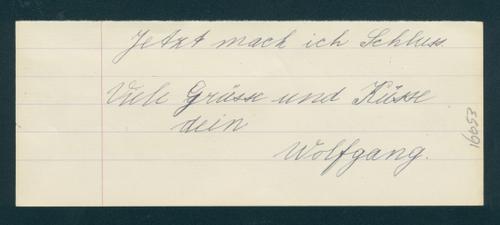 Jetzt mach ich Schluss.
Viele Grüsse und Küsse
dein
Wolfgang.
16953